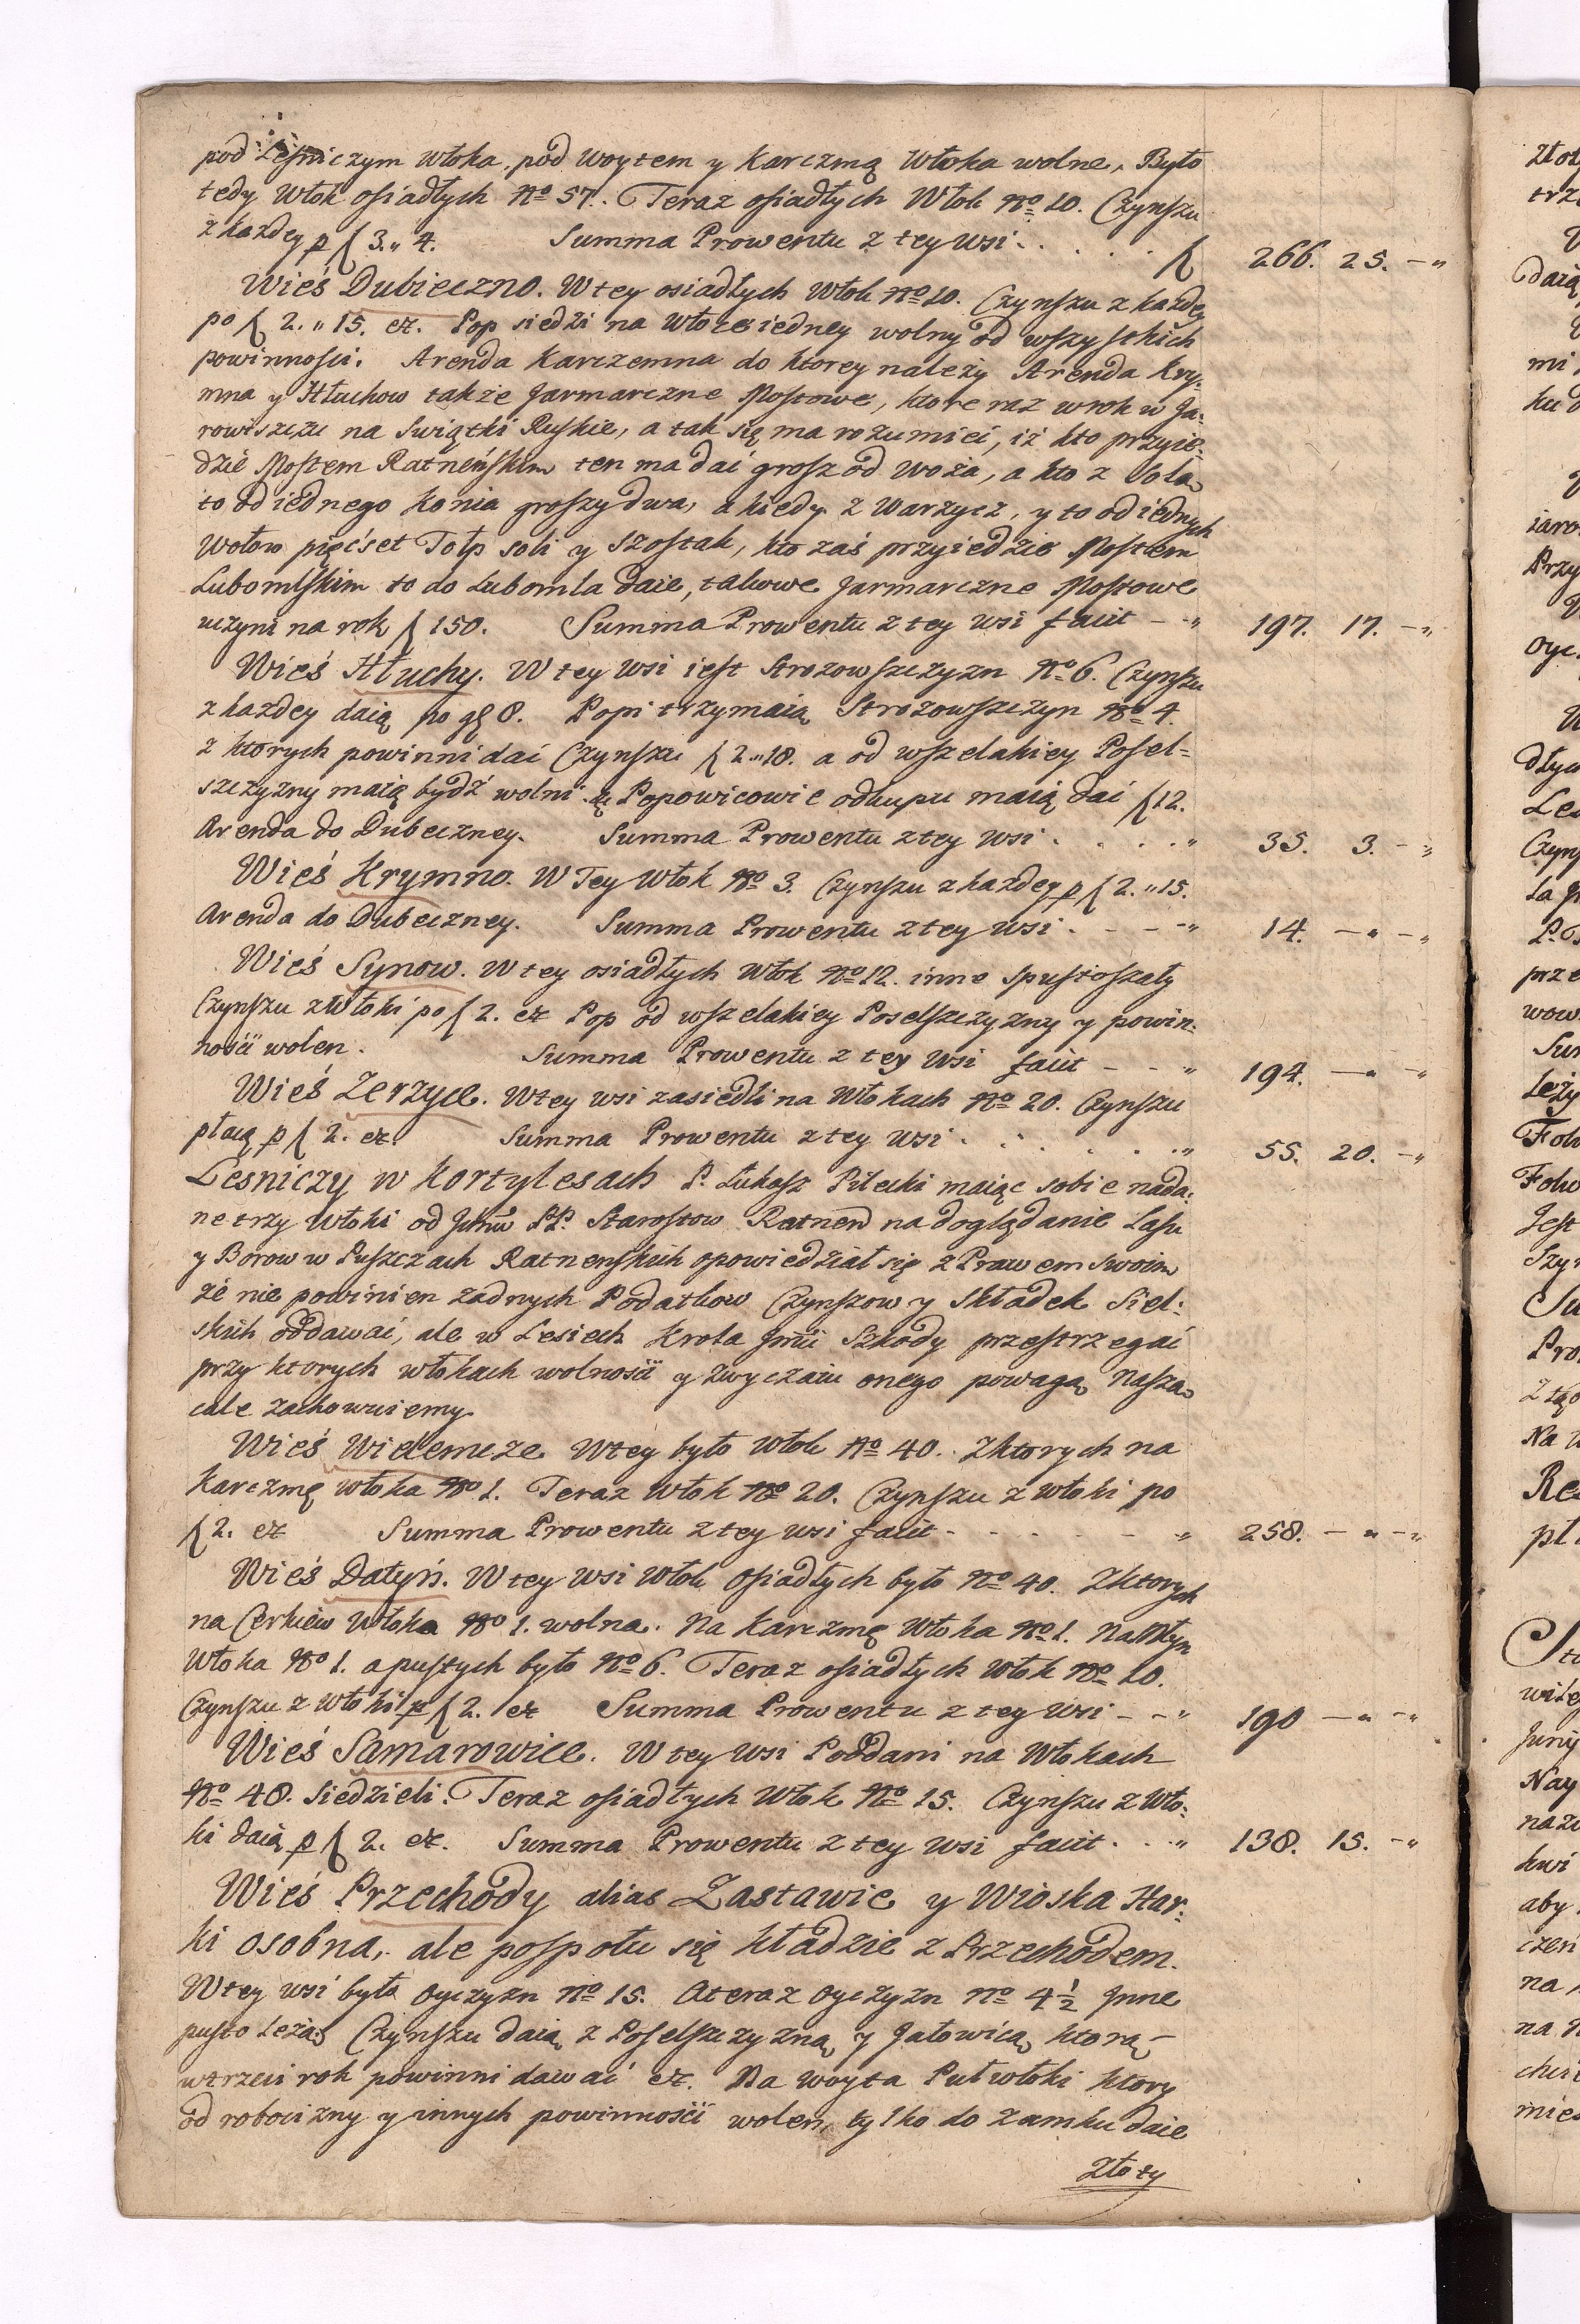 pod Leśniczym włoka, pod woytem y Karczmą włoka wolne, Było
tedy Włok osiadłych No 57. Teraz osiadłych Włok No 10. Czynszu
z każdey p ƒ 3.„ 4. Summa Prowentu z tey wsi . . . . ƒ 266. 25. - „
Wieś Dubieczno. W tey osiadłych włok No 10. Czynszu z każdey
po ƒ 2. „ 15. et. Pop siedzi na włoce iedney wolny od wszystkich
powinności. Arenda Karczemna do ktorey należy Arenda Kry-
mna y Hłuchow także Jarmarczne Mostowe, ktore raz w rok w Ja-
rowiszczu na Swiątki Ruskie, a tak się ma rozumieć, iż kto przyie-
dzie Mostem Ratneńskim ten ma dać grosz od woza, a kto z solą
to od iednego konia groszy dwa, a kiedy z Warzycz, y to od iednych
wołow pięćset Tołp soli y szostak, kto zaś przyiedzie Mostem
Lubomlskim to do Lubomla daie, takowe Jarmarczne Mostowe
uczyni na rok ƒ 150. Summa Prowentu z tey wsi facit - „ 197. 17. - „
Wieś Hłuchy. W tey wsi iest Strozowszczyzn No 6. Czynszu
z każdey daią po gr 8. Popi trzymaią Strozowszczyzn No 4.
z ktorych powinni dać Czynszu ƒ 2.„18. a od wszelakiey Posel-
szczyzny maią bydź wolni Popowicowie odkupu maią dać ƒ 12.
Arenda do Dubeczney. Summa Prowentu z tey wsi . . . . „ 35. 3. - „
Wieś Krymno. W Tey włok No 3. Czynszu z każdey p ƒ 2. „ 15.
Arenda do Dubeczney. Summa Prowentu z tey wsi . - - „ 14. - „ - „
Wieś Synow. W tey osiadłych włok No 12. inne spustoszały
Czynszu z włoki po ƒ 2. et Pop od wszelakiey Poselszczyzny y powin-
ności wolen. Summa Prowentu z tey wsi facit - - „ 194. - „ - „
Wieś Zerzyce. W tey wsi zasiedli na włokach No 20. Czynszu
płacą p ƒ 2. et. Summa Prowentu z tey wsi . . . . . „ 55. 20. - „
Lesniczy w Kortylesach P. Łukasz Pilecki maiąc sobie nada-
ne trzy włoki od Jchmw PP. Starostow Ratnen na doglądanie Lasu
y Borow w Puszczach Ratnenskich opowiedział się z Prawem swoim
że nie powinien żadnych Podatkow Czynszow y składek Siel-
skich oddawać, ale w Lesiech Krola Jmci Szkody przestrzegać
przy ktorych włokach wolności y zwyczaiu onego powagą Naszą
cale zachowuiemy.
Wieś Wielemcze W tey było włok No 40. Z ktorych na
Karczmę włoka No 1. Teraz włok No 20. Czynszu z włoki po
ƒ 2. et Summa Prowentu z tey wsi facit - - - - - „ 258. - „ - „
Wieś Datyń. W tey wsi włok Osiadłych było No 40. Z ktorych
na Cerkiew włoka No 1. wolna. Na Karczmę Włoka No 1. Na Młyn
włoka No 1. a pustych było No 6. Teraz osiadłych włok No 10.
Czynszu z włoki p ƒ 2. et Summa Prowentu z tey wsi - - „ 190 - „ - „
Wieś Samarowice. W tey wsi Poddani na włokach
No 48. siedzieli. Teraz osiadłych włok No 15. Czynszu z wło-
ki daią p ƒ 2. et. Summa Prowentu z tey wsi facit . . „ 138. 15. - „
Wieś Przechody alias Zastawie y Wioska Har-
ki osobna, ale pospołu się kładzie z Przechodem.
W tey wsi było Oyczyzn No 15. A teraz Oyczyzn No 4 1/2 Jnne
pusto leżą. Czynszu daią z Poselszczyzną y Jałowicą, ktorą
w trzeci rok powinni dawać et. Na woyta Puł włoki ktory
od robocizny y innych powinności wolen, tylko do zamku daie
złoty